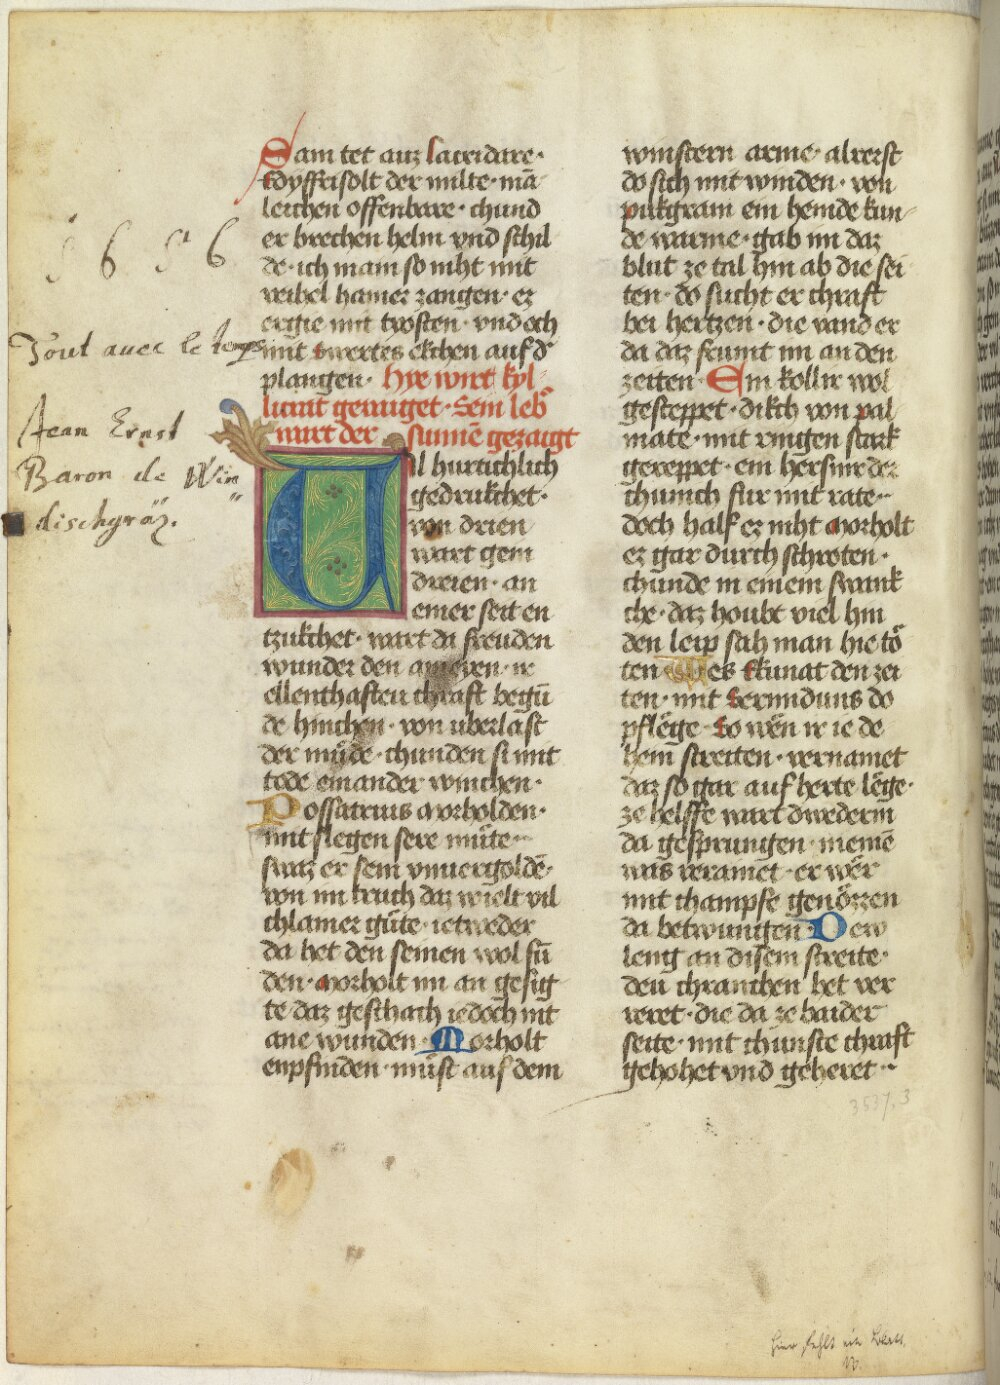 1 6 5 6
Tout avec le temps
Jean Ernst
Baron de Win
dischgräz.
Sam tet auz Laveidare·
Edyffrisolt der milte· mā
leichen offenbare· chund
er brechen helm vnd schil
de· ich main so niht mit
veibel hamer zangen· er
ergie mit trosten· vnd och
mit swertes ekchen auf dˢ
plangen· Hye wirt kyl
licrat geneiget· Sein leb
wart der sunnē gezaigt
Uil hurtichlich
gedrukchet·
von dreien
wart gein
dreien· an
einer seiten
tzukchet· wart da freuden
wunder den ameyen· ir
ellenthaften chraft begū
de hinchen· von uberlast
der müde· chunden si mit
tode einander winchen·
Possatrius Morholden·
mit slegen sere müte··
swaz er sein vnuergoldē·
von im truch daz wielt vil
chlamer güte· ietweder
da het den seinen wol fū
den· Morholt im an gesig
te daz geschach iedoch nit
ane wunden· Morholt
enpfinden· müst auf dem
winstern arme· alrerst
do sich mit winden· von
pukgram ein hemde kun
de warme· gab im daz
blut ze tal hin ab die sei
ten· do sucht er chraft
bei hertzen· die vand er
da daz frumt im an den
zeiten· Ein kollir wol
gesteppet· dikch von pal
mate· mit ringen stark
gereppet· ein hersmider
chunich fur mit rate··
doch half ez niht Morholt
er gar durch schroten·
chunde in einem swank
che· daz houbt viel hin
den leip sah man hie tö
ten· Wes Ekunat den zei
ten· mit Berniduns do
pflege· So wēn ir ie de
hein streiten· vernamet
daz so gar auf herte lege·
ze helffe wart dwederm
da gesprungen· niemē
was veramet· er wer
mit champfe genözzen
da betwungen· Dew
leng an disem streite·
den chranchen het ver
reret· die da ze baider
seite· mit chunste chraft
gehohet vnd geheret··
3537,3
Hier fehlt ein Blatt.